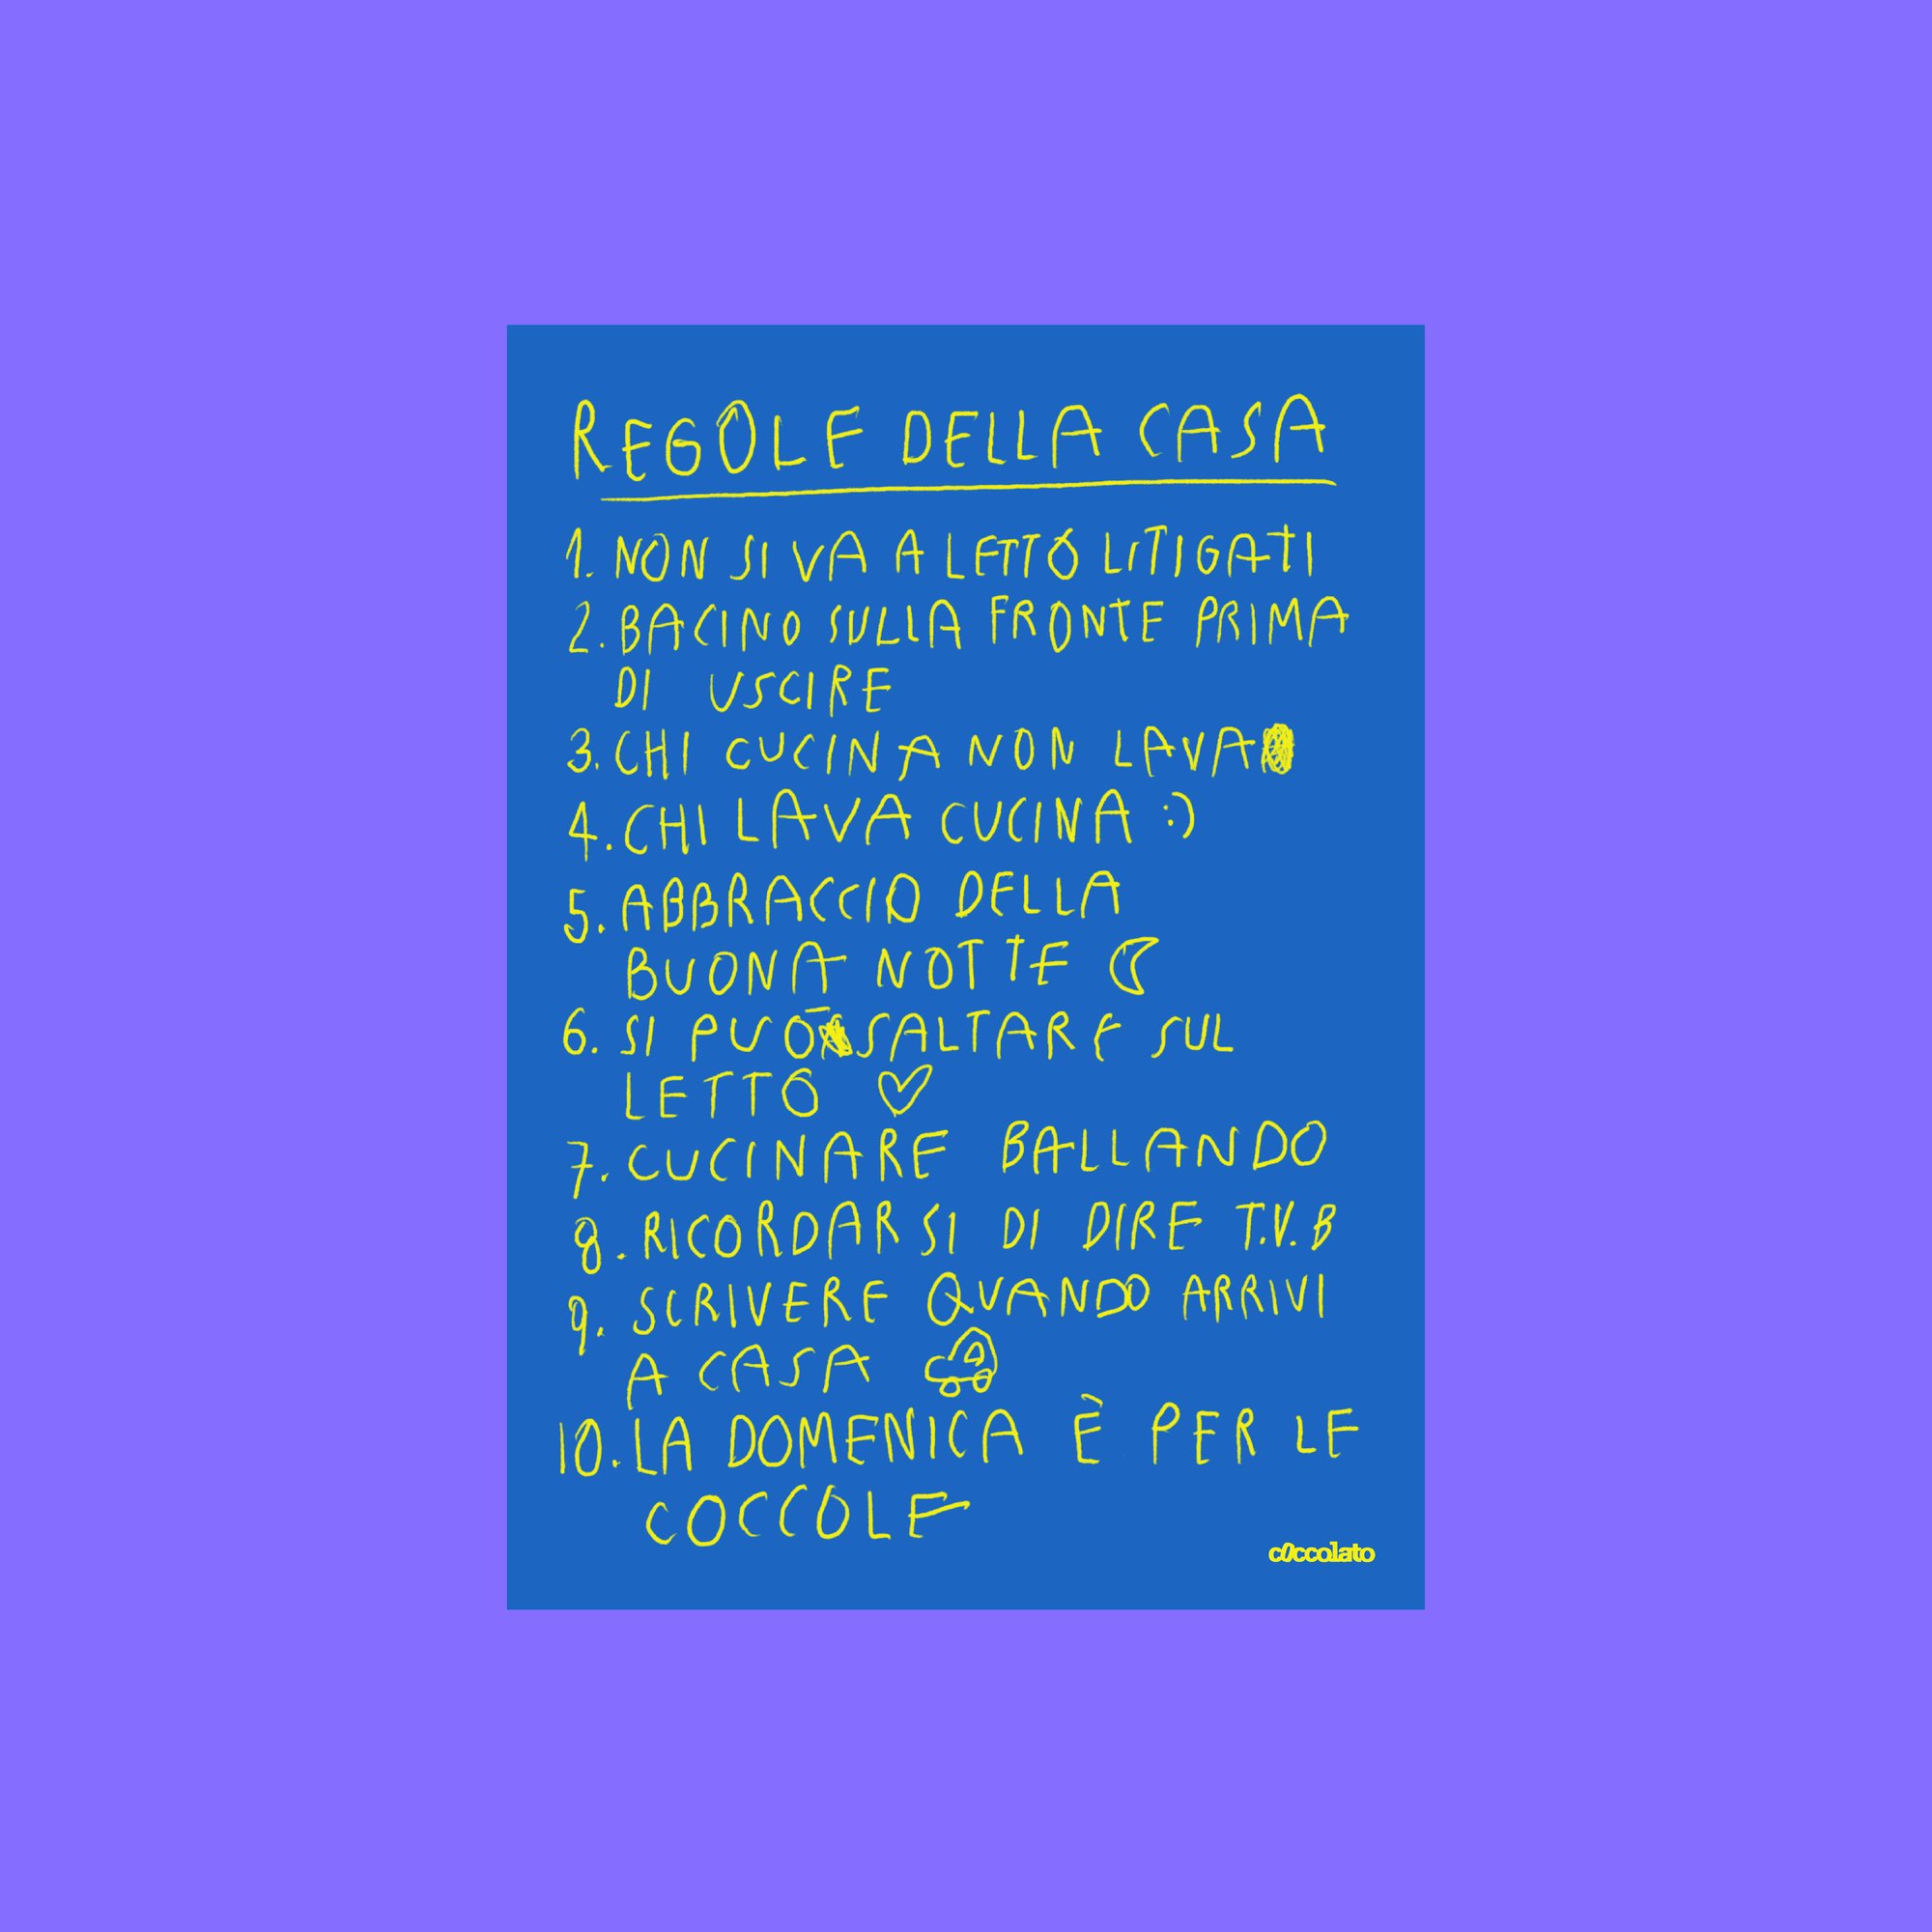 REGOLE DELLA CASA
1. NON SI VA A LETTO LITIGATI
2. BACINO SULLA FRONTE PRIMA
DI USCIRE
3. CHI CUCINA NON LAVA
4. CHI LAVA CUCINA :)
5. ABBRACCIO DELLA
BUONA NOTTE
6. SI PUÒ SALTARE SUL
LETTO ♡
7. CUCINARE BALLANDO
8. RICORDARSI DI DIRE T.V.B
9. SCRIVERE QUANDO ARRIVI
A CASA
10. LA DOMENICA È PER LE
COCCOLE
coccolato